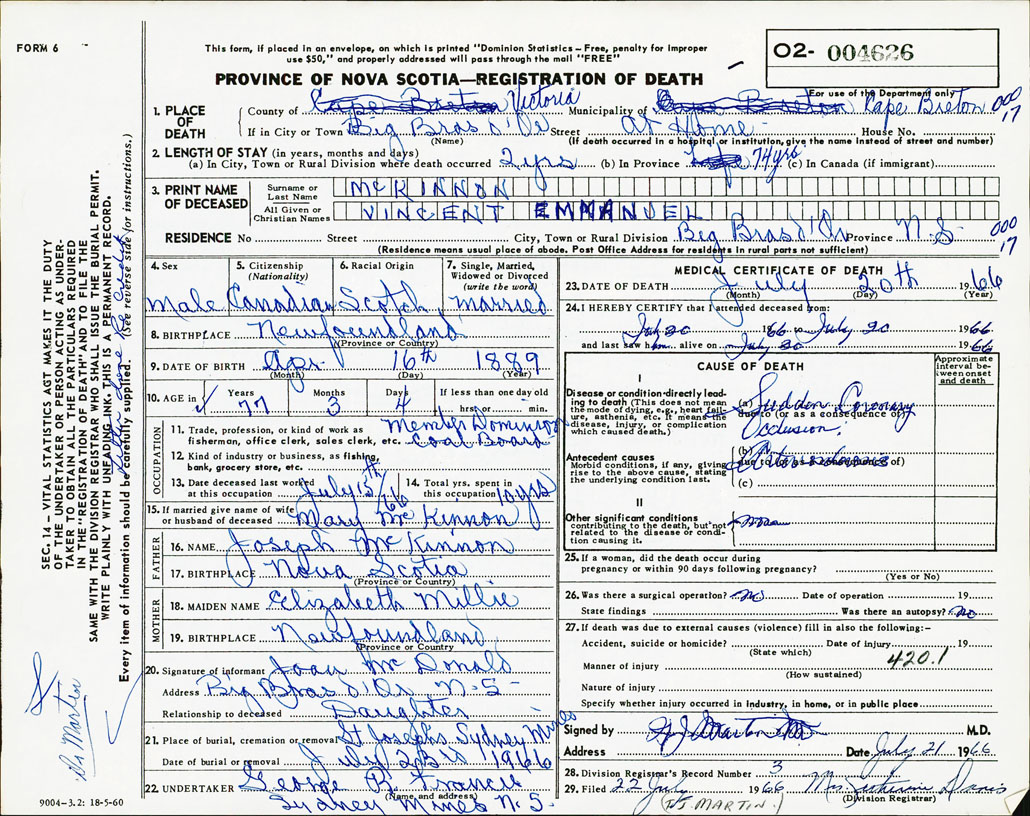 FORM 6
This form, if placed in an envelope, on which is printed "Dominion Statistics – Free, penalty for improper
use $50," and properly addressed will pass through the mail "FREE"
PROVINCE OF NOVA SCOTIA—REGISTRATION OF DEATH
O2- 004626
For use of the Department only
1. PLACE OF DEATH
County of Cape Breton Victoria Municipality of Cape Breton Cape Breton 000 17
If in City or Town Big Bras d'Or Street At Home House No.
(Name) (If death occurred in a hospital or institution, give the name instead of street and number)
2. LENGTH OF STAY (in years, months and days)
(a) In City, Town or Rural Division where death occurred 2 yrs (b) In Province 74 yrs (c) In Canada (if immigrant)
3. PRINT NAME OF DECEASED
Surname or Last Name McKINNON
All Given or Christian Names VINCENT EMMANUEL
RESIDENCE No Street City, Town or Rural Division Big Bras d'Or Province N.S. 000 17
(Residence means usual place of abode. Post Office Address for residents in rural parts not sufficient)
4. Sex Male
5. Citizenship (Nationality) Canadian
6. Racial Origin Scotch
7. Single, Married, Widowed or Divorced (write the word) married
8. BIRTHPLACE Newfoundland
(Province or Country)
9. DATE OF BIRTH Apr 16th 1889
(Month) (Day) (Year)
10. AGE in Years 77 Months 3 Days 4 If less than one day old hrs. or min.
OCCUPATION
11. Trade, profession, or kind of work as fisherman, office clerk, sales clerk, etc. Member Dominion Coal Board
12. Kind of industry or business, as fishing, bank, grocery store, etc.
13. Date deceased last worked at this occupation July 15th/66
14. Total yrs. spent in this occupation 10 yrs
15. If married give name of wife or husband of deceased Mary McKinnon
FATHER
16. NAME Joseph McKinnon
17. BIRTHPLACE Nova Scotia
(Province or Country)
MOTHER
18. MAIDEN NAME Elizabeth Millie
19. BIRTHPLACE Newfoundland
(Province or Country)
20. Signature of informant Joan McDonald
Address Big Bras d'Or N-S-
Relationship to deceased Daughter
21. Place of burial, cremation or removal St Josephs Sydney Mines
Date of burial or removal July 23rd 1966
22. UNDERTAKER George R. Francis
(Name and address)
Sydney Mines N.S.
MEDICAL CERTIFICATE OF DEATH
23. DATE OF DEATH July 20th 1966
(Month) (Day) (Year)
24. I HEREBY CERTIFY that I attended deceased from:
20 1966 to July 20 1966
and last saw him alive on July 20 1966
CAUSE OF DEATH
Approximate interval between onset and death
I
Disease or condition directly leading to death (This does not mean the mode of dying, e.g., heart failure, asthenia, etc. It means the disease, injury, or complication which caused death.)
(a) Sudden Coronary Occlusion
due to (or as a consequence of)
Antecedent causes
Morbid conditions, if any, giving rise to the above cause, stating the underlying condition last.
(b)
due to (or as a consequence of)
(c)
II
Other significant conditions contributing to the death, but not related to the disease or condition causing it.
25. If a woman, did the death occur during pregnancy or within 90 days following pregnancy?
(Yes or No)
26. Was there a surgical operation? No Date of operation 19
State findings Was there an autopsy? No
27. If death was due to external causes (violence) fill in also the following:–
Accident, suicide or homicide? Date of injury 19
(State which)
Manner of injury 420.1
(How sustained)
Nature of injury
Specify whether injury occurred in industry, in home, or in public place
Signed by H J Martin M.D.
Address Date July 21 1966
28. Division Registrar's Record Number 3
29. Filed 22 July 1966 Mrs. Davis
(H J. MARTIN.) (Division Registrar)
SEC. 14 – VITAL STATISTICS ACT MAKES IT THE DUTY
OF THE UNDERTAKER OR PERSON ACTING AS UNDER-
TAKER TO OBTAIN ALL THE PARTICULARS REQUIRED
IN THE "REGISTRATION OF DEATH" AND TO FILE THE
SAME WITH THE DIVISION REGISTRAR WHO SHALL ISSUE THE BURIAL PERMIT.
WRITE PLAINLY WITH UNFADING INK. THIS IS A PERMANENT RECORD.
Every item of information should be carefully supplied. (See reverse side for instructions.)
Dr Martin
9004-3.2: 18-5-60